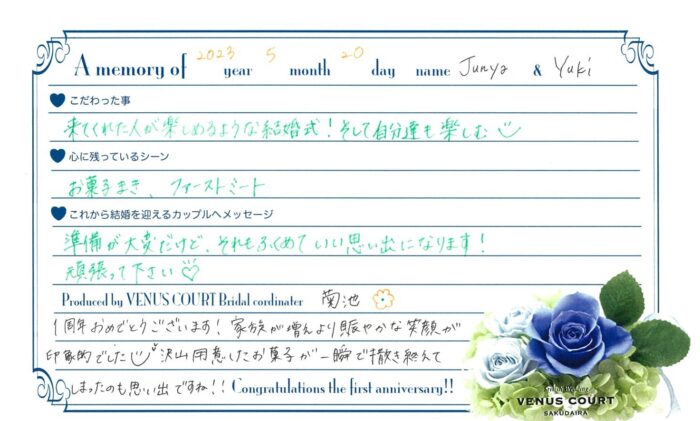 A memory of 2023 year 5 month 20 day name Junya & Yuki
こだわった事
来てくれた人が楽しめるような結婚式！そして自分達も楽しむ
心に残っているシーン
お菓子まき、ファーストミート
これから結婚を迎えるカップルへメッセージ
準備が大変だけど、それもふくめていい思い出になります！
頑張って下さい♡
Produced by VENUS COURT Bridal cordinater 菊池
1周年おめでとうございます！家族が増えより賑やかな笑顔が
印象的でした 沢山用意したお菓子が一瞬で撒き終えて
しまったのも思い出ですね！！Congratulations the first anniversary!!
VENUS COURT
SAKUDAIRA